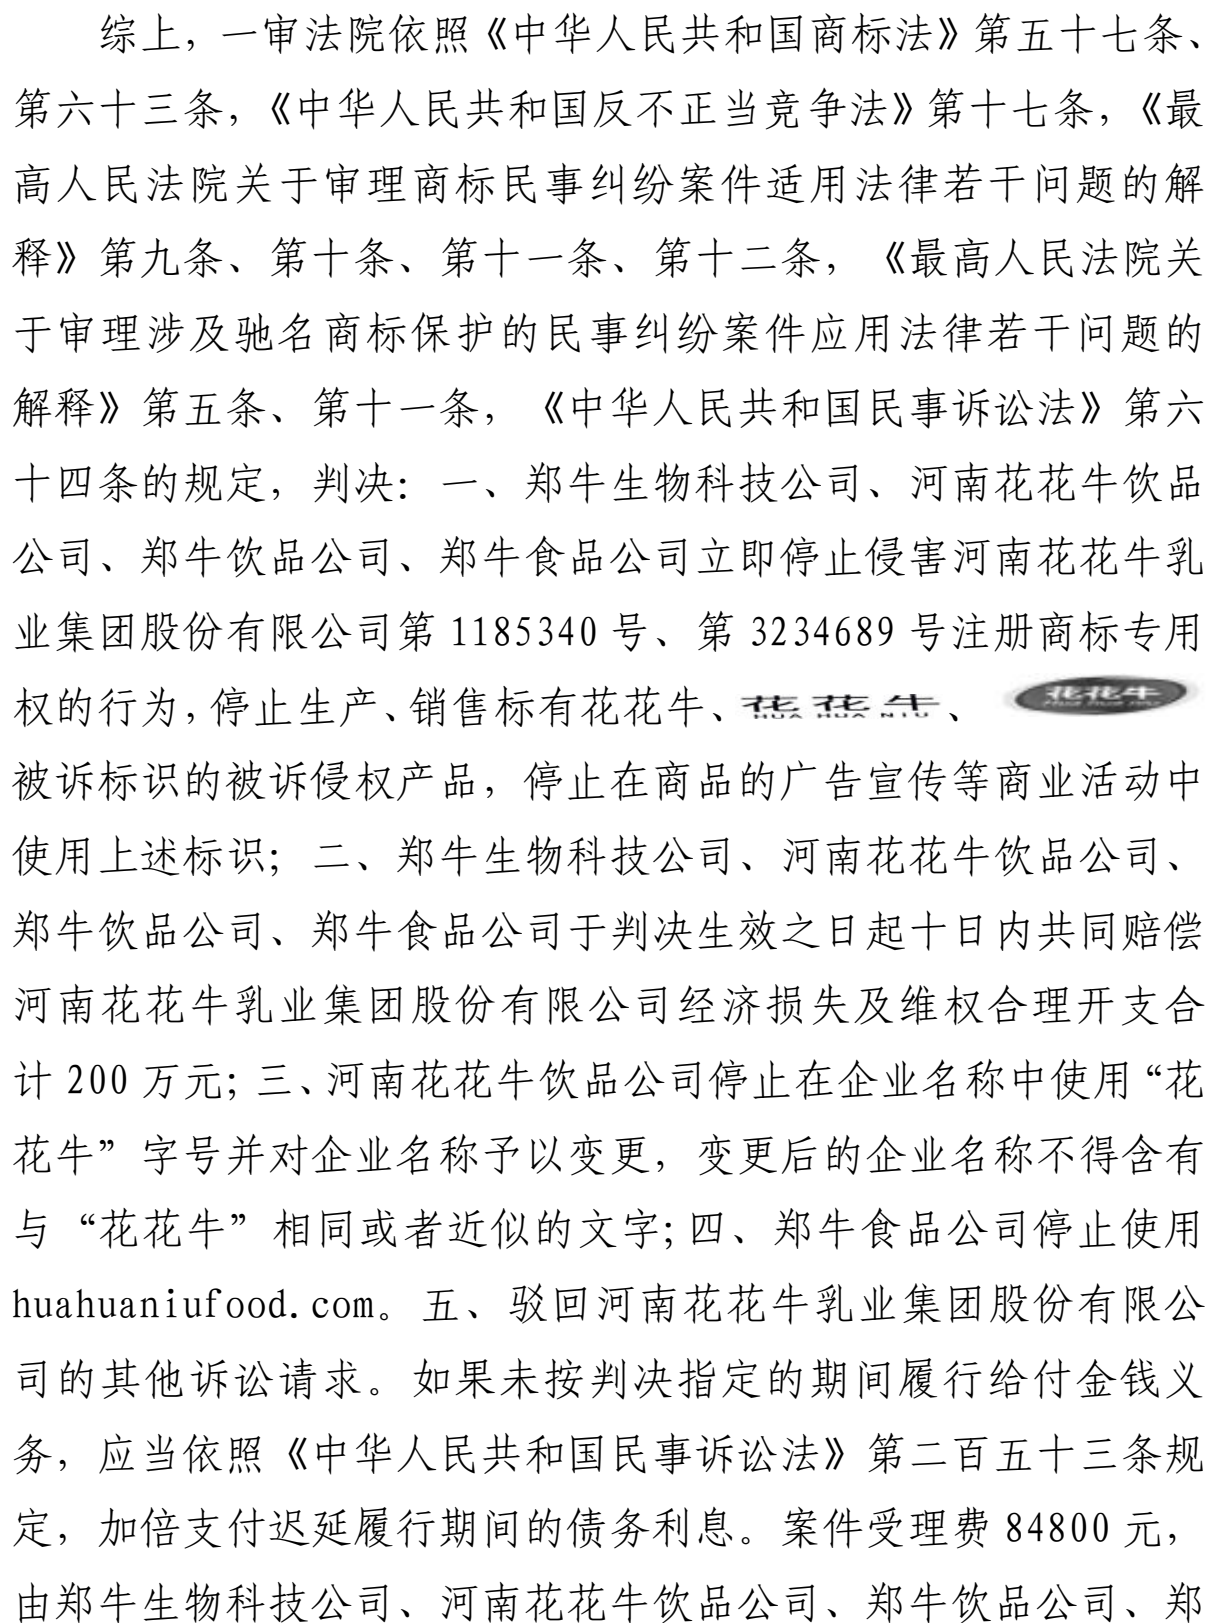 综上，一审法院依照《中华人民共和国商标法》第五十七条、
第六十三条，《中华人民共和国反不正当竞争法》第十七条，《最
高人民法院关于审理商标民事纠纷案件适用法律若干问题的解
释》第九条、第十条、第十一条、第十二条，《最高人民法院关
于审理涉及驰名商标保护的民事纠纷案件应用法律若干问题的
解释》第五条、第十一条，《中华人民共和国民事诉讼法》第六
十四条的规定，判决：一、郑牛生物科技公司、河南花花牛饮品
公司、郑牛饮品公司、郑牛食品公司立即停止侵害河南花花牛乳
业集团股份有限公司第 1185340 号、第 3234689 号注册商标专用
权的行为，停止生产、销售标有花花牛、花花牛 HUA HUA NIU、花花牛 Hua hua niu
被诉标识的被诉侵权产品，停止在商品的广告宣传等商业活动中
使用上述标识；二、郑牛生物科技公司、河南花花牛饮品公司、
郑牛饮品公司、郑牛食品公司于判决生效之日起十日内共同赔偿
河南花花牛乳业集团股份有限公司经济损失及维权合理开支合
计 200 万元；三、河南花花牛饮品公司停止在企业名称中使用“花
花牛”字号并对企业名称予以变更，变更后的企业名称不得含有
与“花花牛”相同或者近似的文字；四、郑牛食品公司停止使用
huahuaniufood.com。五、驳回河南花花牛乳业集团股份有限公
司的其他诉讼请求。如果未按判决指定的期间履行给付金钱义
务，应当依照《中华人民共和国民事诉讼法》第二百五十三条规
定，加倍支付迟延履行期间的债务利息。案件受理费 84800 元，
由郑牛生物科技公司、河南花花牛饮品公司、郑牛饮品公司、郑